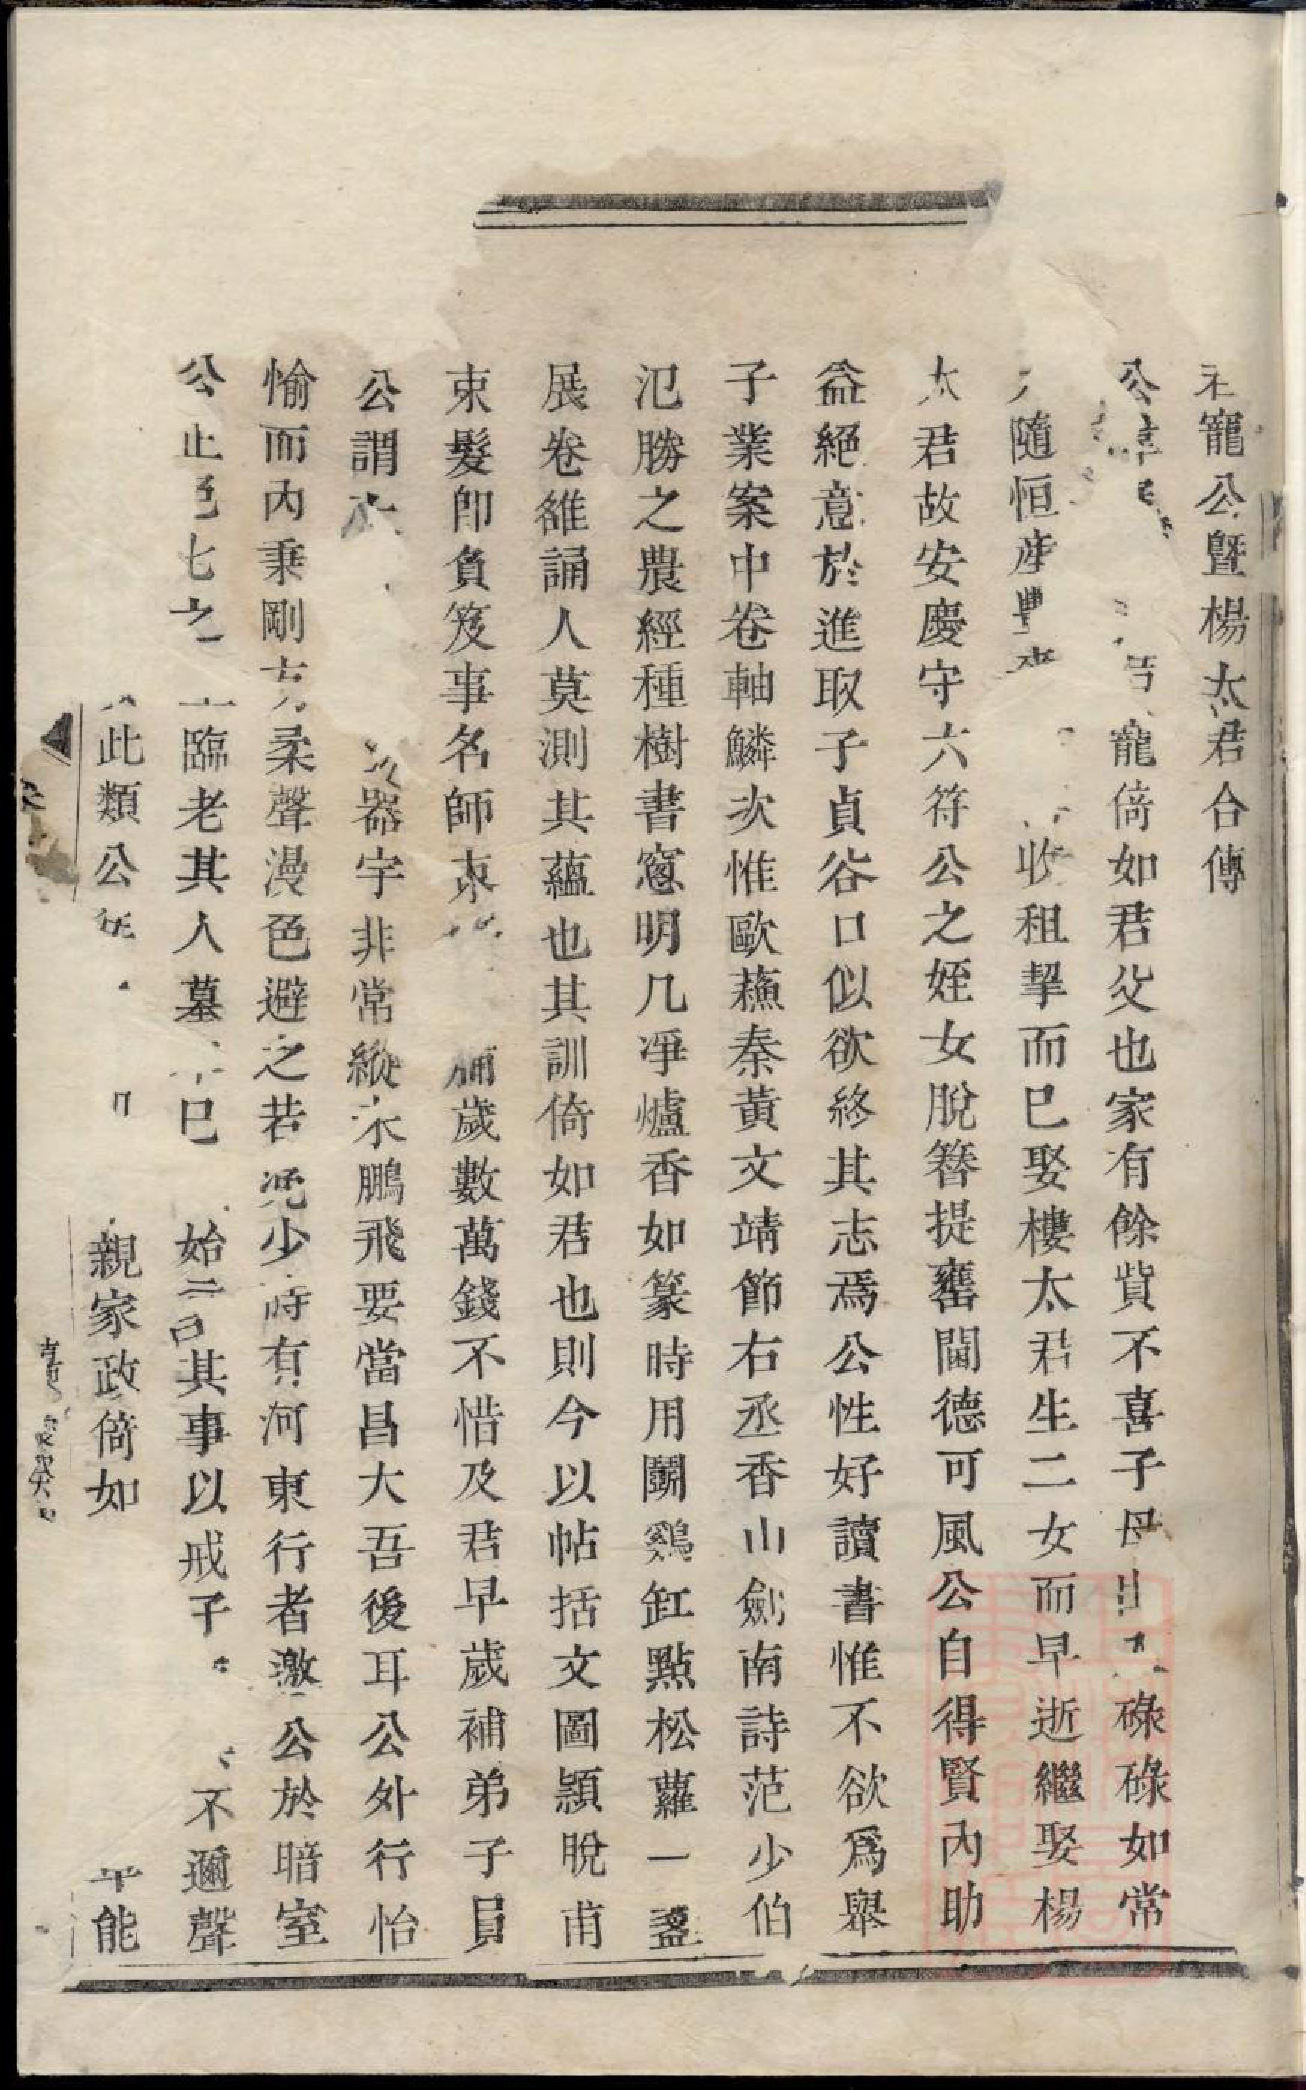 寵公暨楊太君合傳
公 寵倚如君父也家有餘貲不喜子母 碌碌如常
隨恒產豐 收租挈而已娶樓太君生二女而早逝繼娶楊
太君故安慶守六符公之姪女脫簪提罋閫德可風公自得賢內助
益絕意於進取子貞谷口似欲終其志焉公性好讀書惟不欲爲舉
子業案中卷軸鱗次惟歐蘓秦黃文靖節右丞香山劍南詩范少伯
氾勝之農經種樹書窻明几凈爐香如篆時用鬭鷄缸點松蘿一盞
展卷雒誦人莫測其蘊也其訓倚如君也則今以帖括文圖頴脫甫
束髮卽負笈事名師束 歲數萬錢不惜及君早歲補弟子員
公謂 器宇非常縱不鵬飛要當昌大吾後耳公外行怡
愉而內秉剛方柔聲漫色避之若 少時有河東行者激公於暗室
公止 之 臨老其人墓 已 始 其事以戒子 不邇聲
此類公 親家政倚如 能